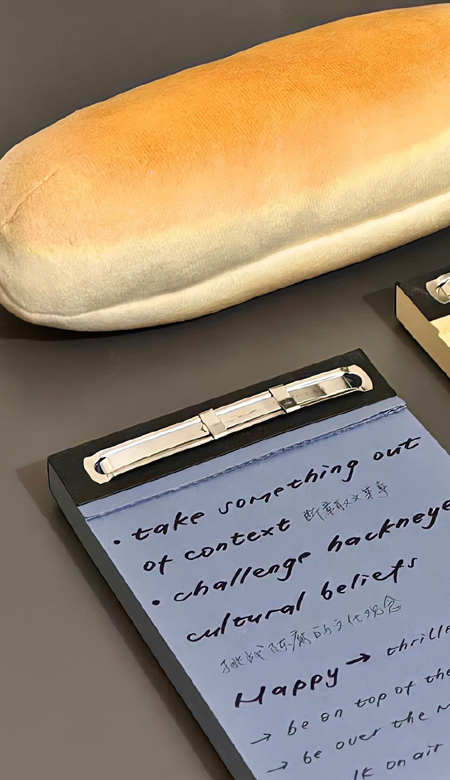 • take something out
of context 断章取义
• challenge hackneye
cultural beliefs
挑战陈腐的文化观念
Happy → thrille
→ be on top of the
→ be over the M
lk on air